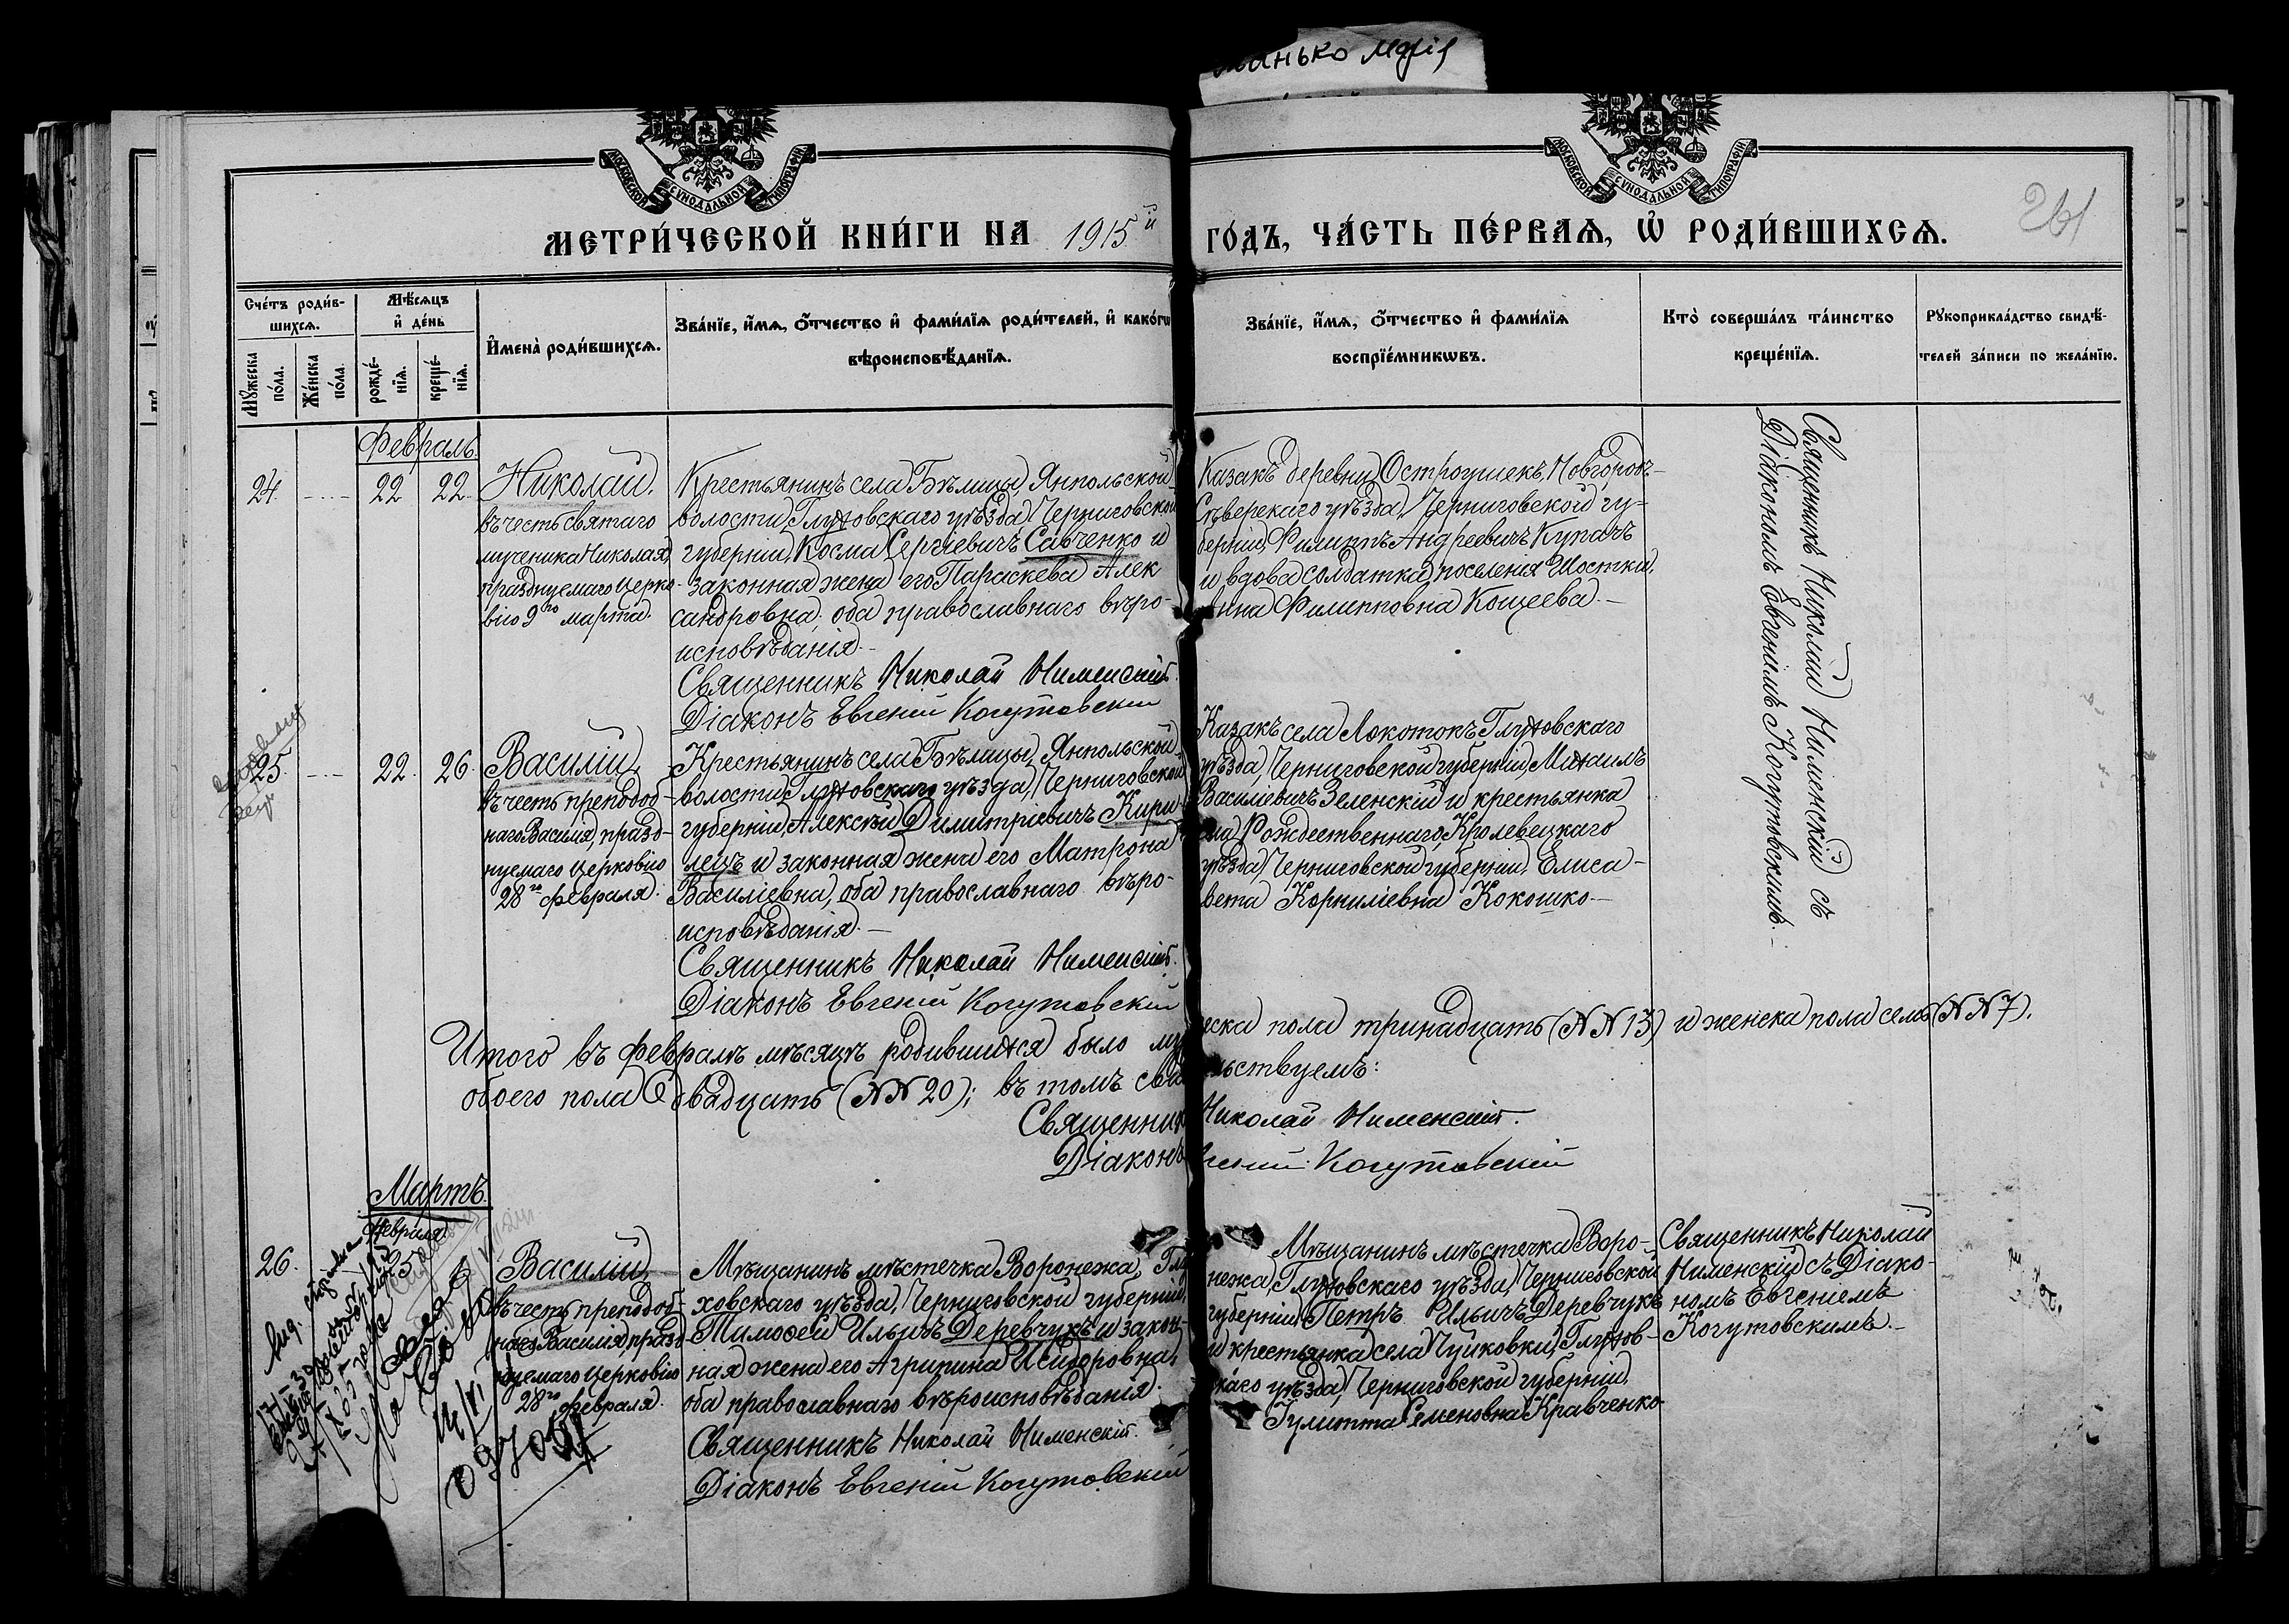 манько Марія
МОСКОВСКОЙ СѴНОДАЛЬНОЙ ТИПОГРАФІИ
МОСКОВСКОЙ СѴНОДАЛЬНОЙ ТИПОГРАФІИ
МЕТРИ́ЧЕСКОЙ КНИ́ГИ НА 1915й ГО́ДЪ, ЧА́СТЬ ПЕ́РВАѦ, Ѡ҆ РОДИ́ВШИХСѦ.
261
Сче́тъ роди́в-
шихсѧ.
Мꙋ́жеска
по́ла.
Же́нска
по́ла.
Мѣ́сѧцъ
и҆ де́нь
рожде́-
нїѧ.
креще́-
нїѧ.
И҆мена̀ роди́вшихсѧ.
Зва́нїе, и҆́мѧ, ѻ҆́тчество и҆ фами́лїѧ роди́телей, и҆ како́гѡ
вѣроисповѣ́данїѧ.
Зва́нїе, и҆́мѧ, ѻ҆́тчество и҆ фами́лїѧ
воспрїе́мникѡвъ.
Кто̀ соверша́лъ та́инство
креще́нїѧ.
Рꙋкоприкла́дство свидѣ́-
телей за́писи по жела́нїю.
Февраль.
24.
22
22.
Николай.
въ честь святаго
мученика Николая,
празднуемаго Церко-
вію 9го марта.
Крестьянинъ села Бѣлицы, Янпольской
волости, Глуховскаго уѣзда, Черниговской
губерніи, Косма Сергіевичъ Савченко и
законная жена его Параскева Алек
сандровна, оба православнаго вѣро-
исповѣданія.
Священникъ Николай Нименскій.
Діаконъ Евгеній Когутовскій
Казакъ деревни Острогушекъ, Новгородъ-
Сѣверскаго уѣзда, Черниговской гу-
берніи, Филиппъ Андреевичъ Купачъ
и вдова солдатка поселенія Шостки,
Анна Филипповна Кощеева.
Священникъ Николай Нименскій съ
Діакономъ Евгеніемъ Когутовскимъ.
25.
22.
26.
Василій,
въ честь преподоб-
наго Василія, празд-
нуемаго Церковію
28го февраля.
Крестьянинъ села Бѣлицы, Янпольской
волости, Глуховскаго уѣзда, Черниговской
губерніи, Алексѣй Димитріевичъ Кири-
лецъ и законная жена его Матрона
Василіевна, оба православнаго вѣро-
исповѣданія.
Священникъ Николай Нименскій.
Діаконъ Евгеній Когутовскій
Казакъ села Локотокъ Глуховскаго
уѣзда, Черниговской губерніи, Михаилъ
Василіевичъ Зеленскій и крестьянка
села Рождественнаго, Кролевецкаго
уѣзда, Черниговской губерніи, Елиса-
вета Корниліевна Кокошко.
Итого въ февралѣ мѣсяцѣ родившихся было мужеска пола тринадцать (NN 13) и женска пола семь (NN 7).
обоего пола двадцать (NN 20); въ томъ свидѣтельствуемъ:
Священникъ Николай Нименскій.
Діаконъ Евгеній Когутовскій
Мартъ.
Февраля
26.
25
Василій,
въ честь преподоб-
наго Василія, празд-
нуемаго Церковію
28го февраля.
Мѣщанинъ мѣстечка Воронежа, Глу
ховскаго уѣзда, Черниговской губерніи,
Тимоѳей Ильичъ Деревчукъ и закон-
ная жена его Агрипина Исидоровна,
оба православнаго вѣроисповѣданія.
Священникъ Николай Нименскій.
Діаконъ Евгеній Когутовскій
Мѣщанинъ мѣстечка Воро-
нежа, Глуховскаго уѣзда, Черниговской
губерніи, Петръ Ильичъ Деревчукъ
и крестьянка села Чуйковки, Глухов-
скаго уѣзда, Черниговской губерніи,
Іулитта Семеновна Кравченко
Священникъ Николай
Нименскій съ Діако-
номъ Евгеніемъ
Когутовскимъ.